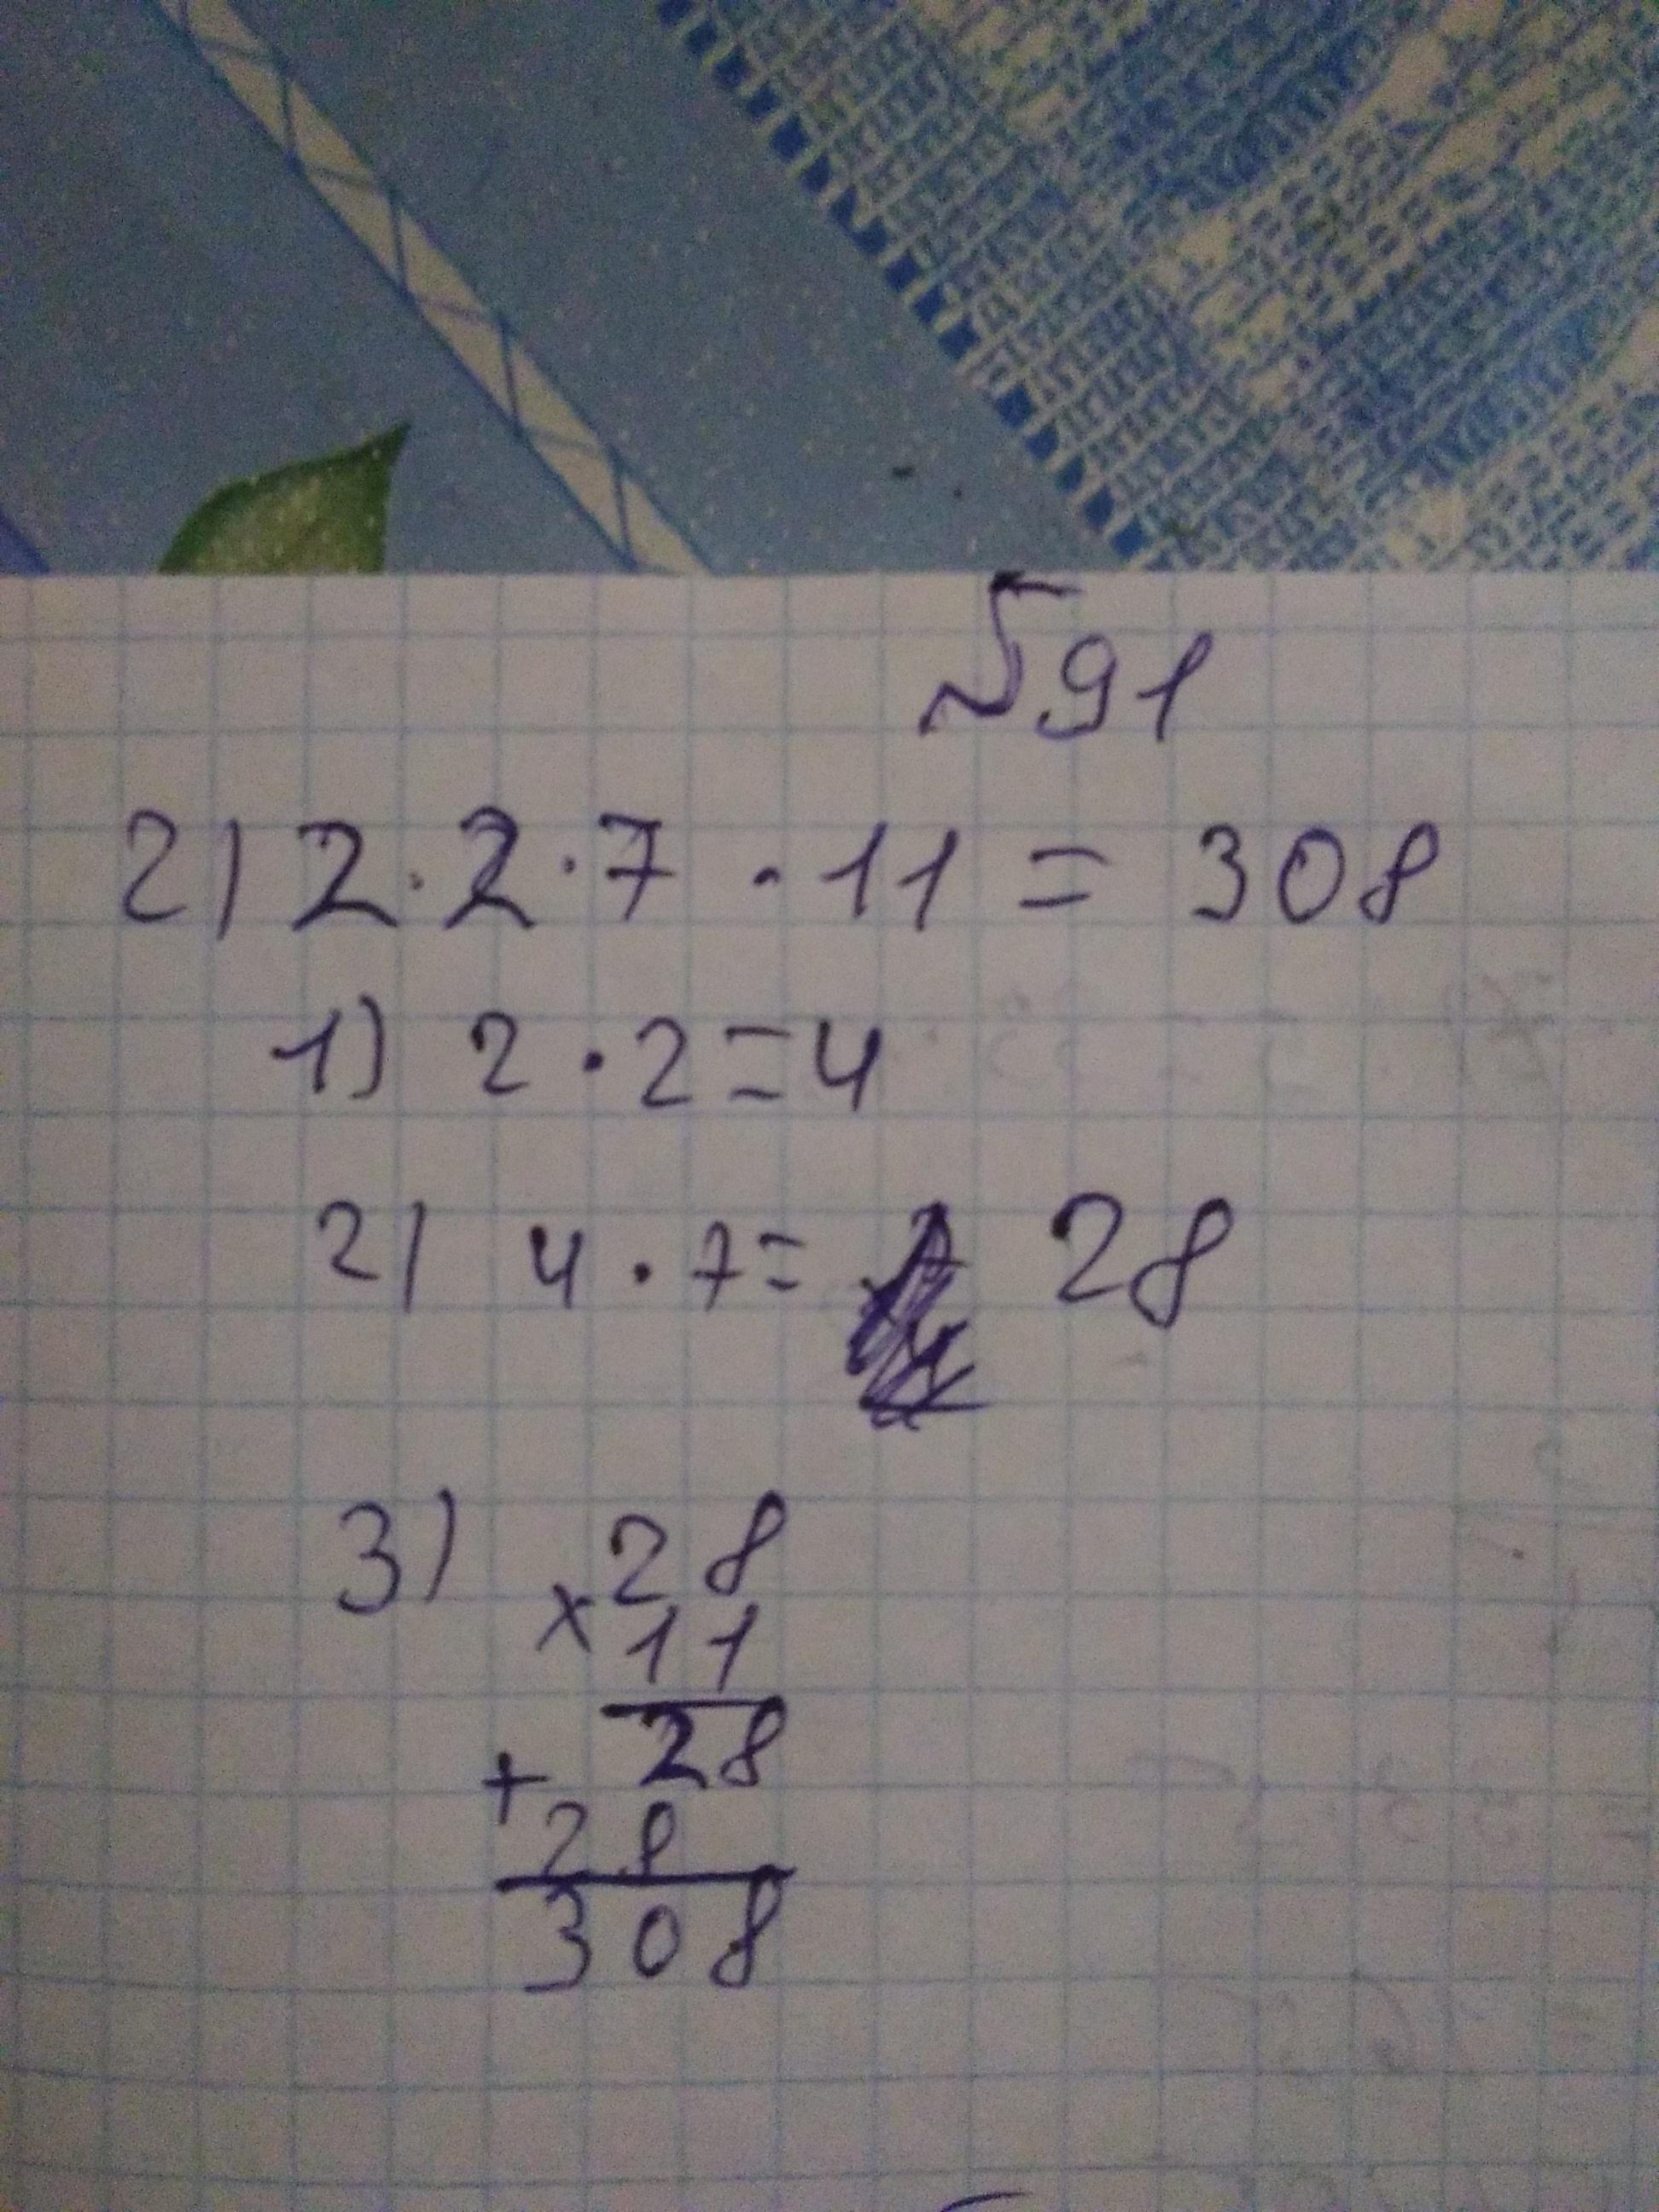 №91
2) 2·2·7·11 = 308
1) 2·2=4
2) 4·7= 28
3) ×28
11
28
+
28
308